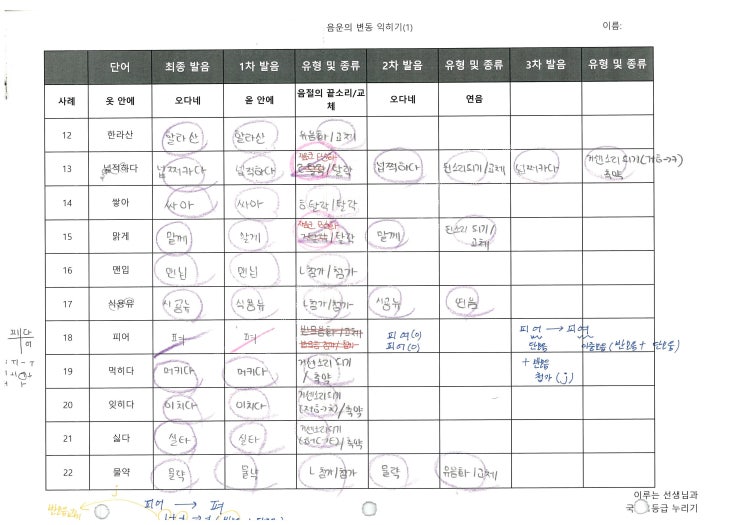 음운의 변동 익히기(1) 이름:
단어 최종 발음 1차 발음 유형 및 종류 2차 발음 유형 및 종류 3차 발음 유형 및 종류
사례 옷 안에 오다네 옫 안에 음절의 끝소리/교체 오다네 연음
12 한라산 할라산 할라산 유음화/교체
13 넓적하다 넙쩌카다 넙적하다 자음군 단순화 ㄹ탈락/탈락 넙쩍하다 된소리되기/교체 넙쩌카다 거센소리되기(ㄱ+ㅎ→ㅋ) 축약
14 쌓아 싸아 싸아 ㅎ탈락/탈락
15 맑게 말께 말게 ㄱ탈락/탈락 말께 된소리되기/교체
16 맨입 맨닙 맨닙 ㄴ첨가/첨가
17 식용유 시굥뉴 식용뉴 ㄴ첨가/첨가 시굥뉴 연음
18 피어 펴 펴 반모음화/교체 반모음 첨가/첨가 피여(O) 피어(O) 피어 → 피여
단모음 이중모음(반모음+단모음)
+ 반모음 첨가(j)
19 먹히다 머키다 머키다 거센소리되기/축약
20 잊히다 이치다 이치다 거센소리되기(ㅈ+ㅎ→ㅊ)/축약
21 싫다 실타 실타 거센소리되기/축약
22 물약 물략 물냑 ㄴ첨가/첨가 물략 유음화/교체
피어 → 펴
이루는 선생님과
등급 누리기